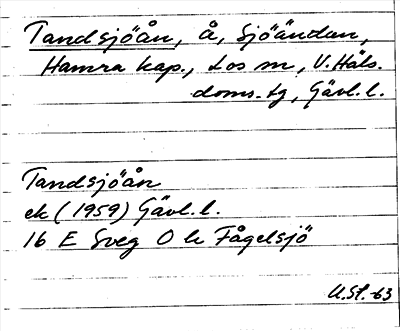 Tandsjöån, å, Sjöändan,
Hamra kap., Los sn, V. Häls.
doms. tg, Gävl. l.
Tandsjöån
ek (1959) Gävl. l.
16 E Sveg O h Fågelsjö
U.St. -63